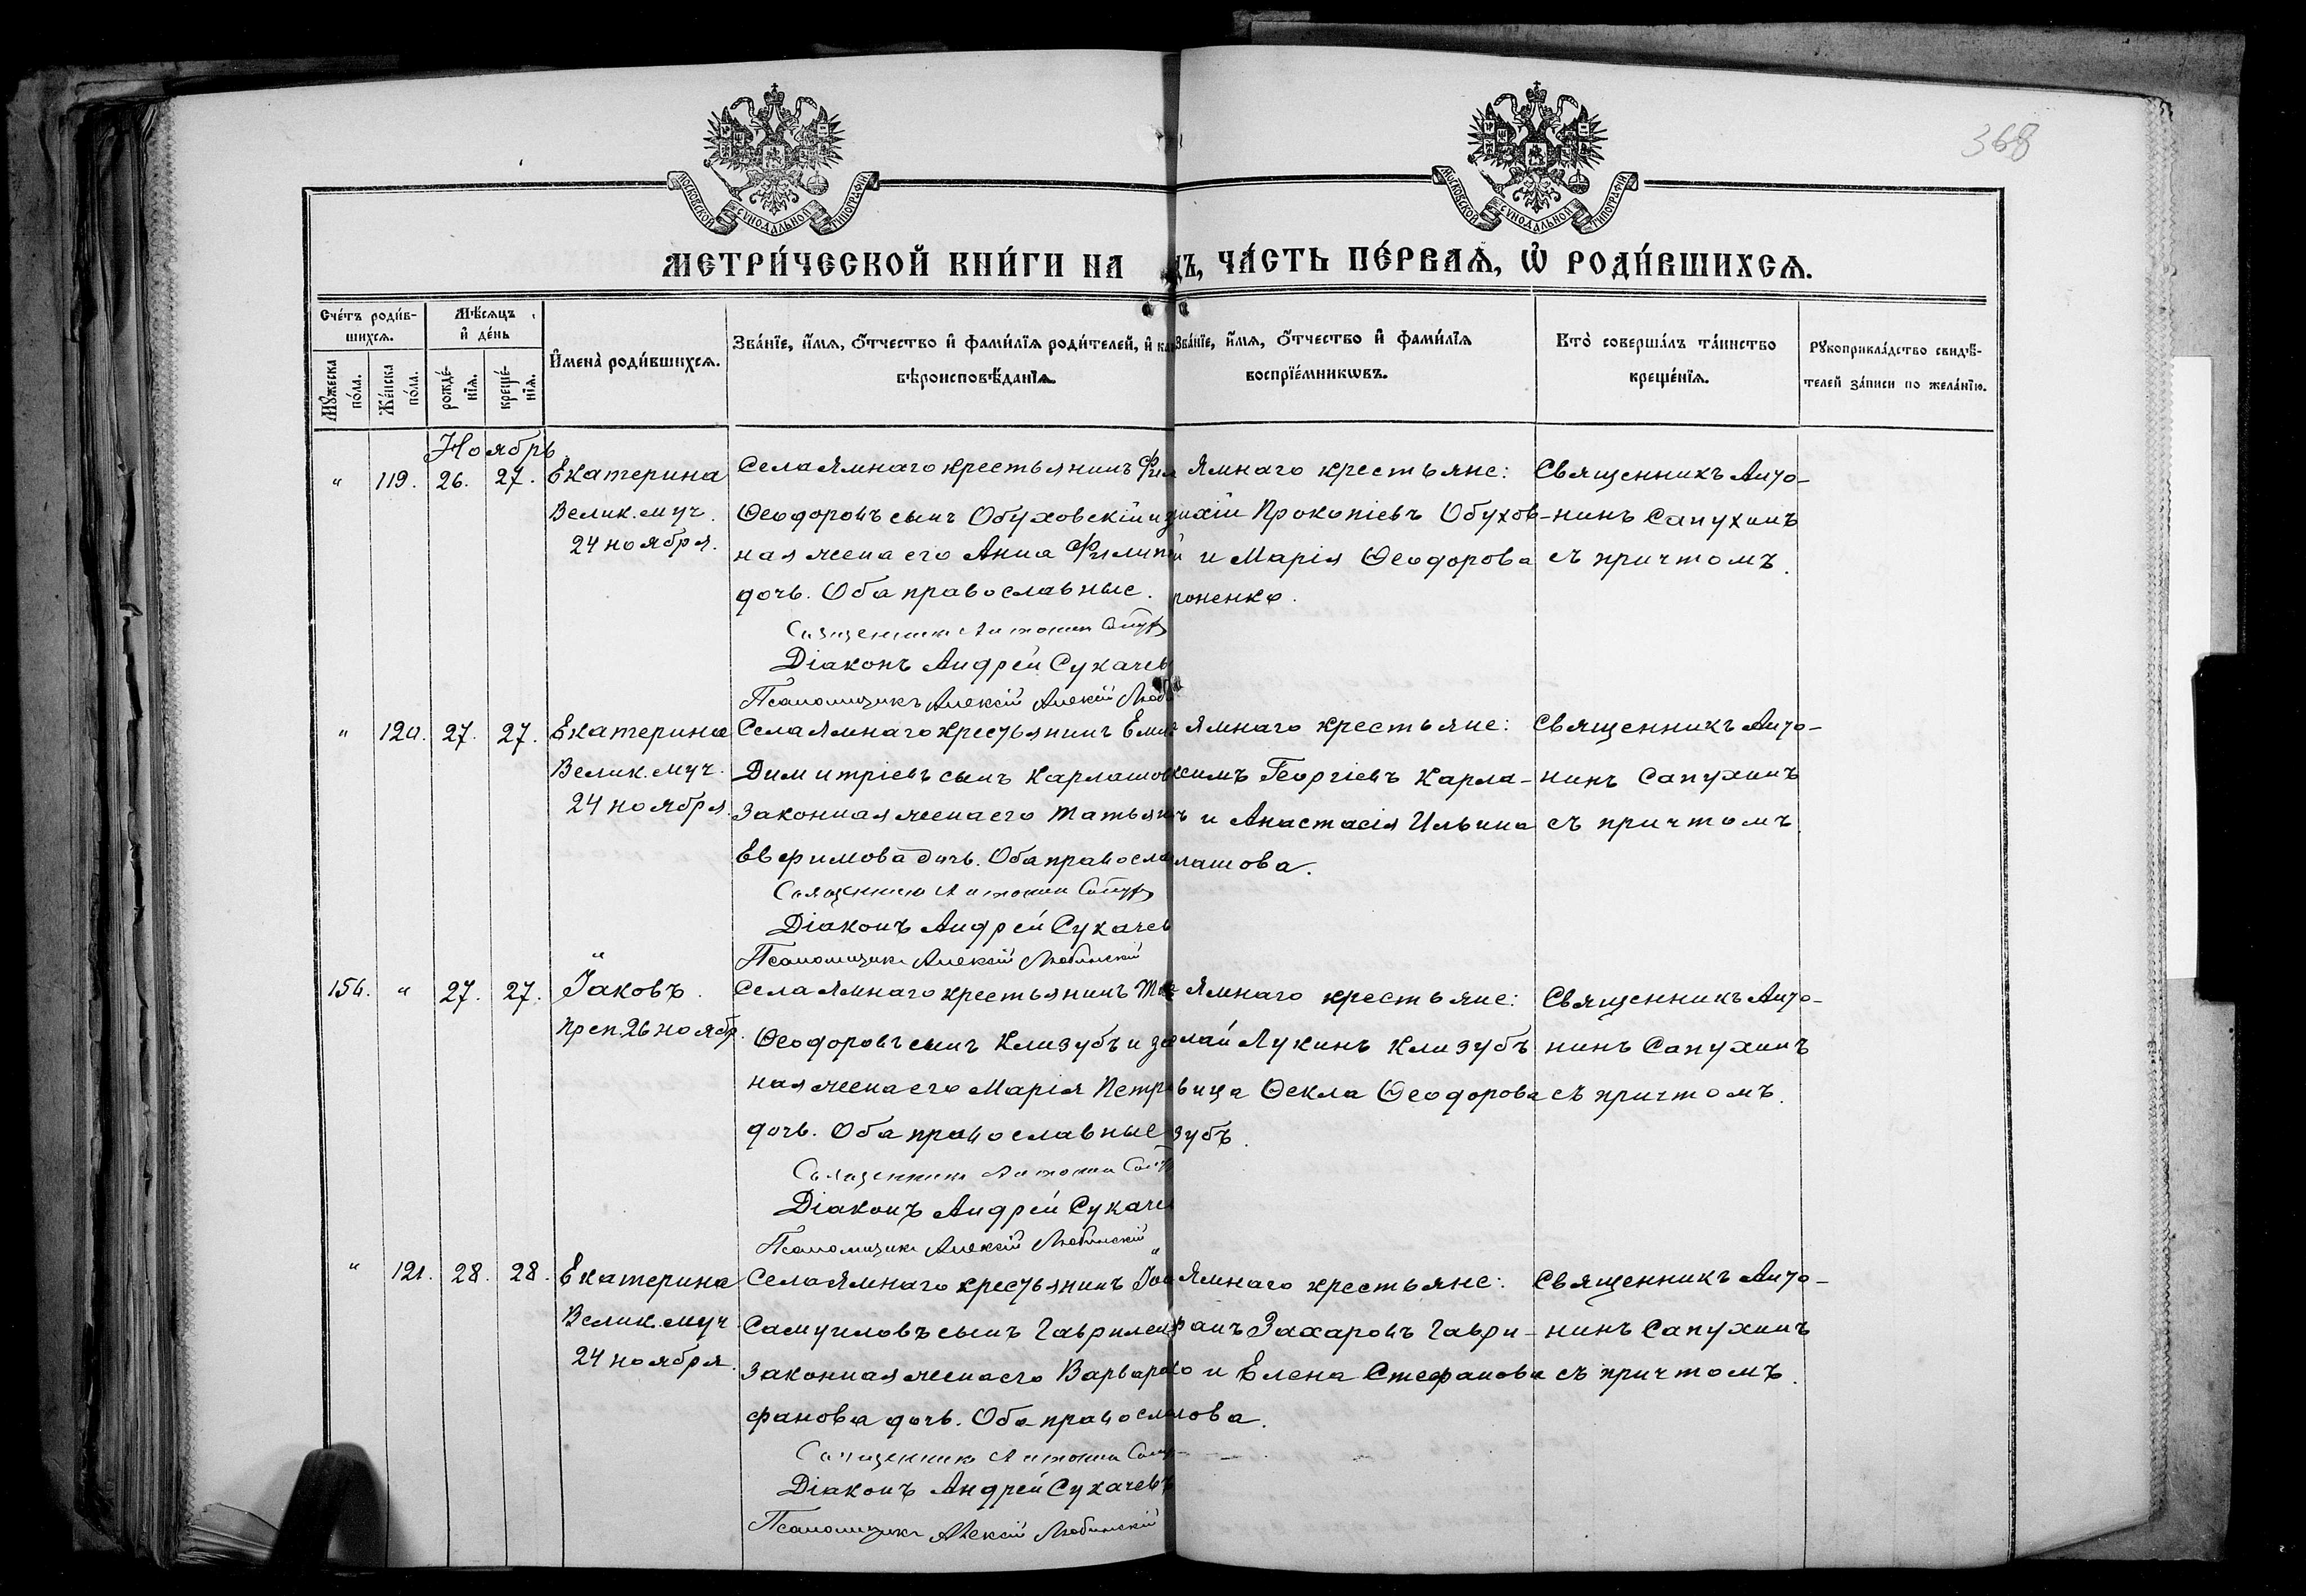 368
МОСКОВСКОЙ СѴНОДАЛЬНОЙ ТИПОГРАФІИ
МОСКОВСКОЙ СѴНОДАЛЬНОЙ ТИПОГРАФІИ
МЕТРИ́ЧЕСКОЙ КНИ́ГИ НА
ЧА́СТЬ ПЕ́РВАѦ, Ѡ҆ РОДИ́ВШИХСѦ.
Сче́тъ роди́в-
шихсѧ.
Мꙋ́жеска
по́ла.
Же́нска
по́ла.
Мѣ́сѧцъ
и҆ де́нь
рожде́-
нїѧ.
креще́-
нїѧ.
И҆мена̀ роди́вшихсѧ.
Зва́нїе, и҆́мѧ, ѻ҆́тчество и҆ фами́лїѧ роди́телей, и҆
вѣроисповѣ́данїѧ.
Зва́нїе, и҆́мѧ, ѻ҆́тчество и҆ фами́лїѧ
воспрїе́мникѡвъ.
Кто̀ соверша́лъ та́инство
креще́нїѧ.
Рꙋкоприкла́дство свидѣ́-
телей за́писи по жела́нїю.
Ноябрь
" 119. 26. 27. Екатерина
Велик. муч.
24 ноября.
Села Ямнаго крестьянинъ Фил
Ѳеодоровъ сынъ Обуховскій и з
ная жена его Анна Филип
дочь. Оба православные.
Священникъ Антонин
Діаконъ Андрей Сукачев
Псаломщикъ Алексій Алексій Люби
Ямнаго крестьяне:
ихій Прокопіевъ Обухов-
й и Марія Ѳеодорова
роненко.
Священникъ Анто-
нинъ Сапухинъ
съ причтомъ.
" 120. 27. 27. Екатерина
Велик. муч.
24 ноября.
Села Ямнаго крестьянинъ Емел
Димитріевъ сынъ Карлашов
законная жена его Татьян
Евфимова дочь. Оба правосла
Священникъ Антонин
Діаконъ Андрей Сукачев
Псаломщикъ Алексій Любинскій
Ямнаго крестьяне:
ксимъ Георгіевъ Карла-
ъ и Анастасія Ильина
лашова.
Священникъ Анто-
нинъ Сапухинъ
съ причтомъ.
156. " 27. 27. Іаковъ.
Преп. 26 нояб.
Села Ямнаго крестьянинъ
Ѳеодоровъ сынъ Клизубъ и за
ная жена его Марія Петро
дочь. Оба православные
Священникъ Антонин
Діаконъ Андрей Сукаче
Псаломщикъ Алексій Любинскій
Ямнаго крестьяне:
олай Лукинъ Клизубъ
вица Ѳекла Ѳеодорова
зубъ.
Священникъ Анто-
нинъ Сапухинъ
съ причтомъ.
" 121. 28. 28. Екатерина
Велик. муч
24 ноября.
Села Ямнаго крестьянинъ Іоа
Самуиловъ сынъ Гаврилен
законная жена его Варвара
фанова дочь. Оба правосла
Священникъ Антонин
Діаконъ Андрей Сукачевъ
Псаломщикъ Алексій Любинскій
Ямнаго крестьяне:
фанъ Захаровъ Гаври-
ко и Елена Стефанова
лова.
Священникъ Анто-
нинъ Сапухинъ
съ причтомъ.